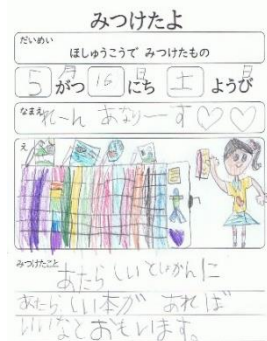 みつけたよ
だいめい
ほしゅうこうで みつけたもの
5がつ 16にち 土ようび
月 日 日
なまえ れーん あなりーす♡♡
え
みつけたこと
あたらしいとしょかんに
あたらしい本が あれば
いいなとおもいます。